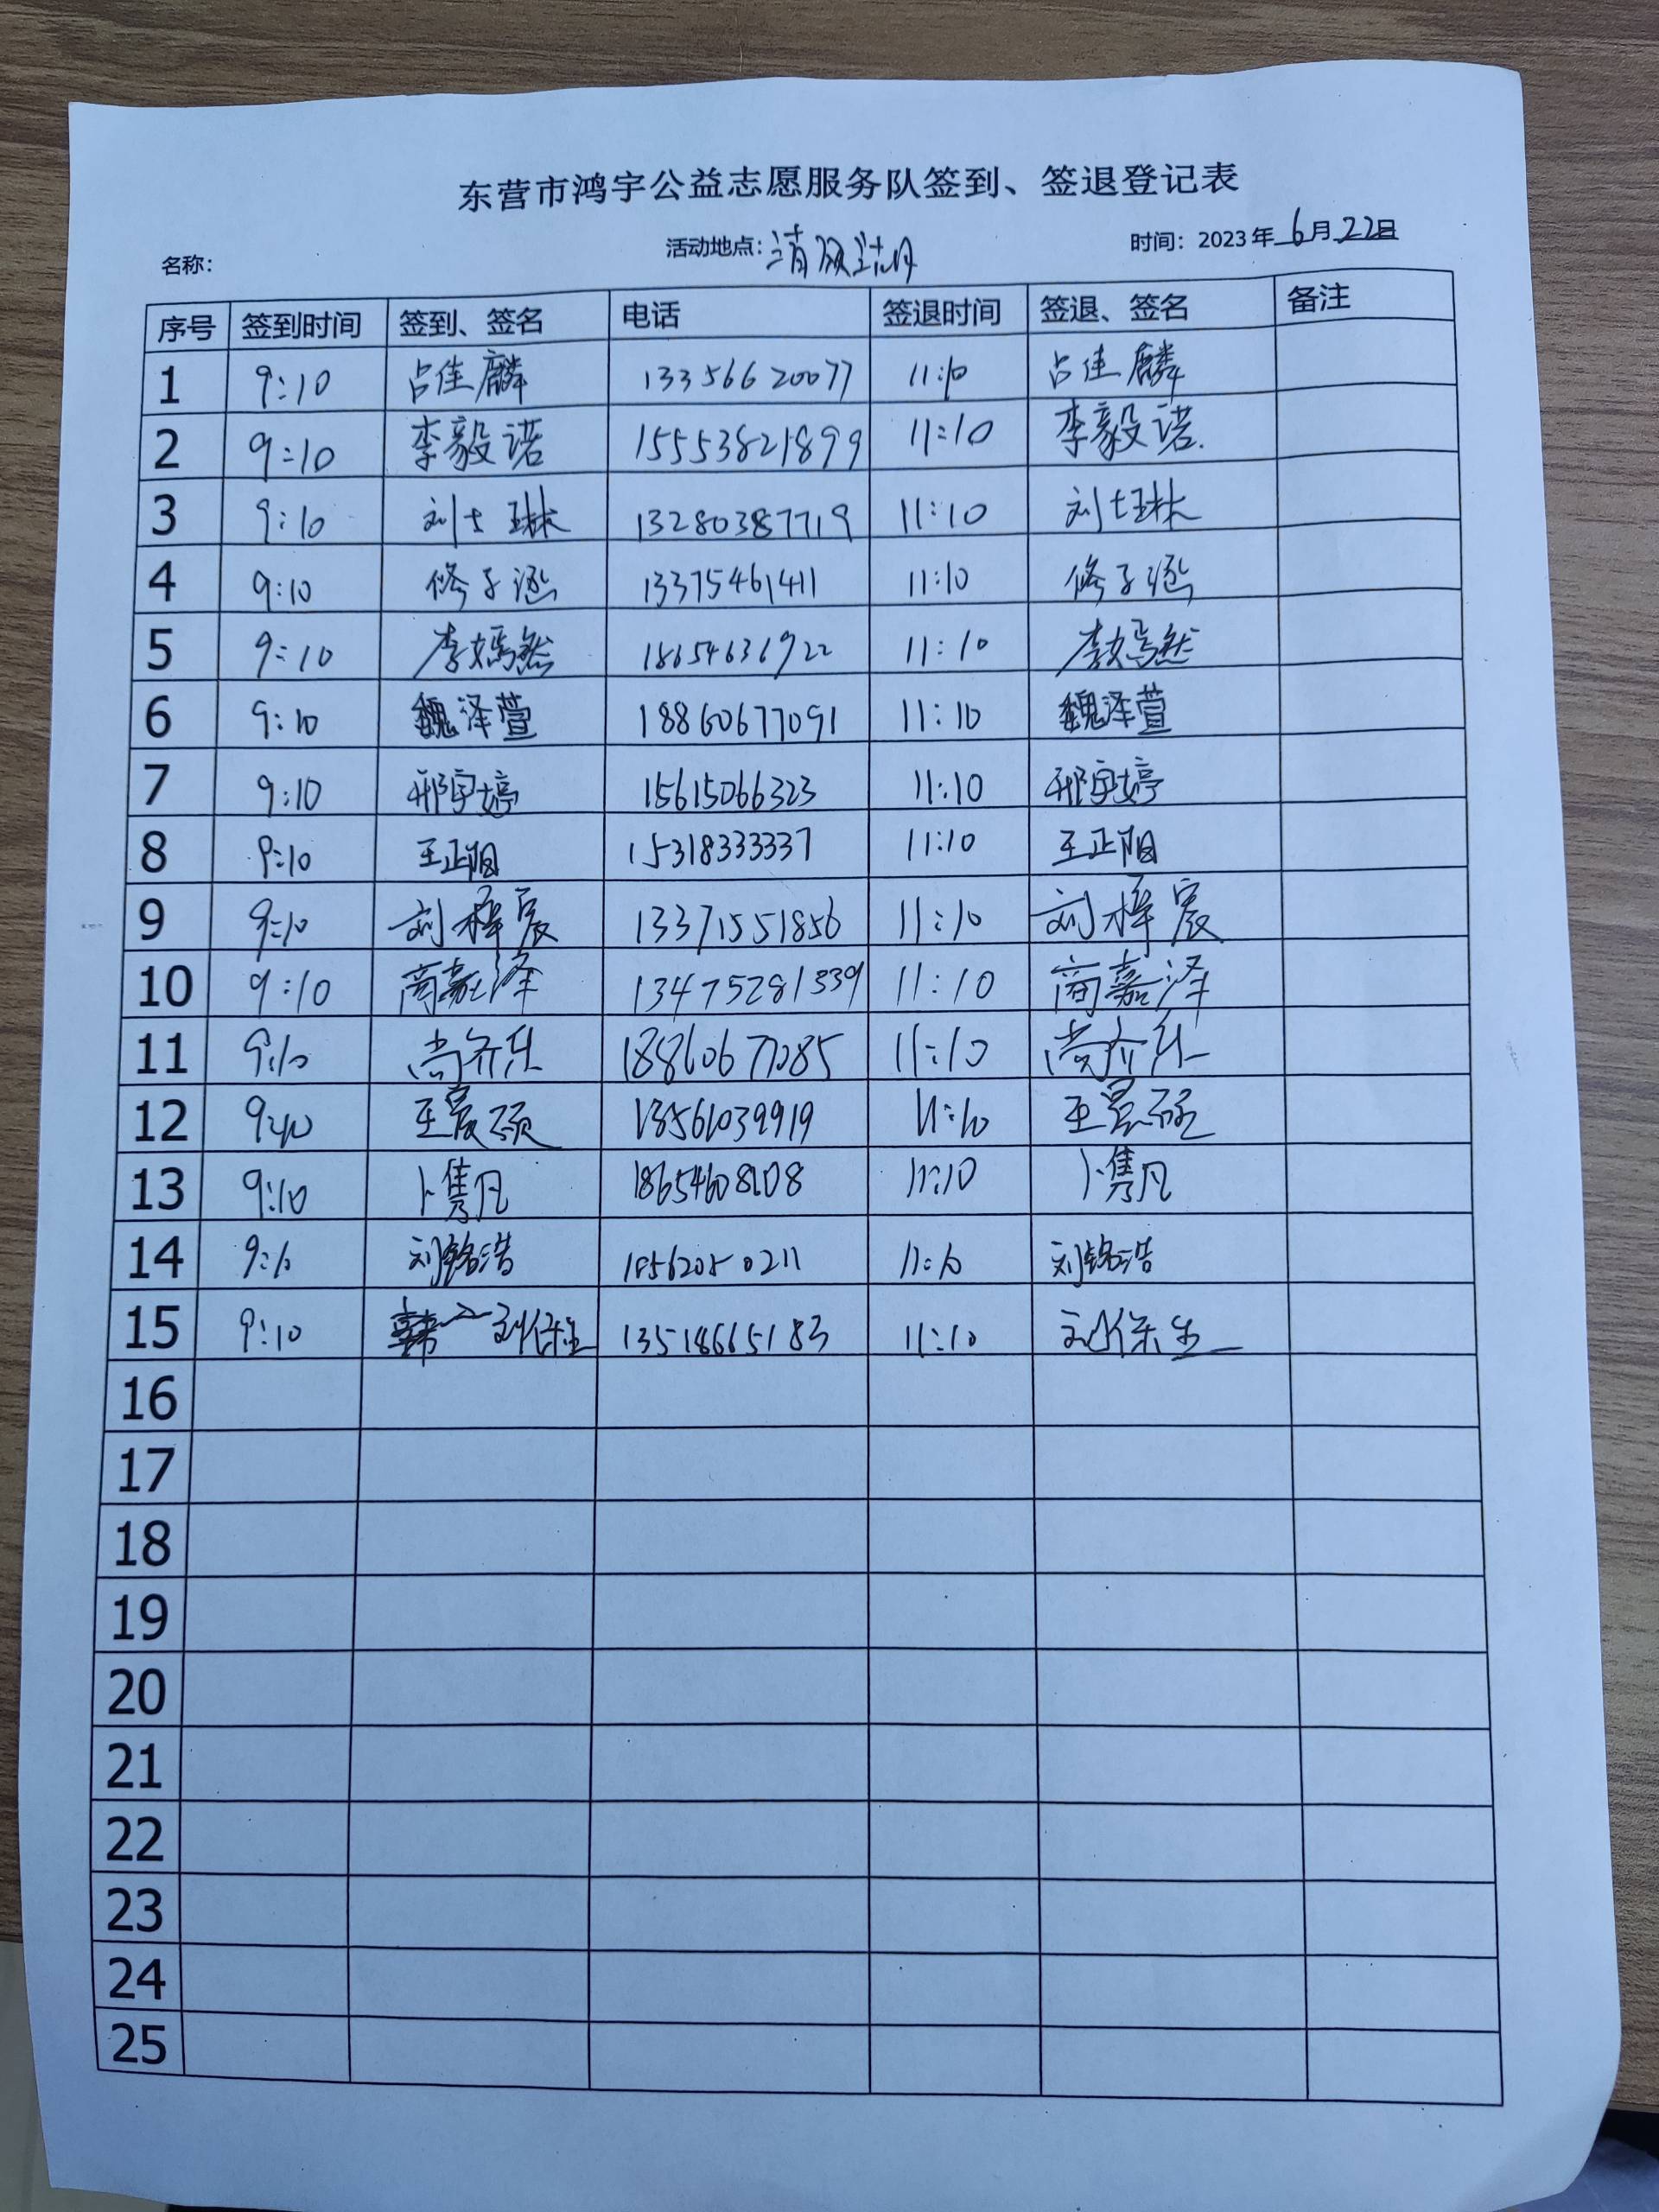 东营市鸿宇公益志愿服务队签到、签退登记表
名称: 活动地点:清风 时间: 2023年6月22日
序号 签到时间 签到、签名 电话 签退时间 签退、签名 备注
1 9:10 占佳麟 13356620077 11:10 占佳麟
2 9:10 李毅诺 15553821899 11:10 李毅诺.
3 9:10 刘士琳 13280387719 11:10 刘士琳
4 9:10 修子涵 13375461411 11:10 修子涵
5 9:10 李嫣然 18654631922 11:10 李嫣然
6 9:10 魏泽萱 18860677091 11:10 魏泽萱
7 9:10 邢宇婷 15615066323 11:10 邢宇婷
8 9:10 王正阳 15318333337 11:10 王正阳
9 9:10 刘梓宸 13371551856 11:10 刘梓宸
10 9:10 商嘉泽 13475281339 11:10 商嘉泽
11 9:10 尚乔 18860677085 11:10 尚乔
12 9:10 王晨硕 13561039919 11:10
13 9:10 卜隽凡 18654608108 11:10 卜隽凡
14 9:10 刘铭浩 18562050211 11:10 刘铭浩
15 9:10 刘保生 13518665183 11:10 刘保生
16
17
18
19
20
21
22
23
24
25